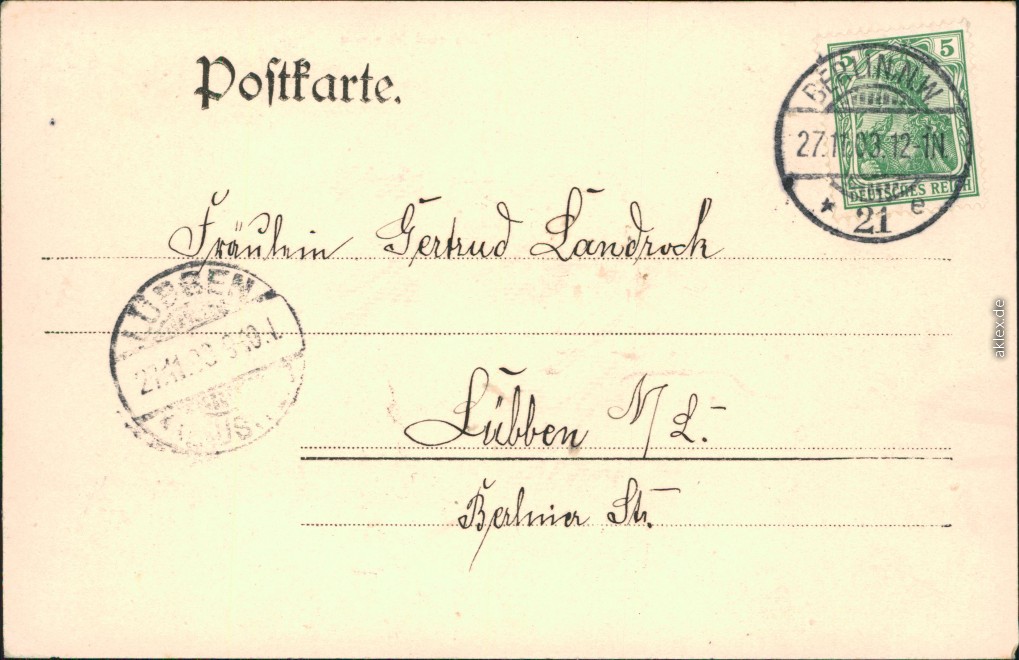 Postkarte.
5 5
BERLIN. N.W.
27.11.03. 12-1N.
DEUTSCHES REICH
* 21 e
Fräulein Gertrud Landrock
LÜBBEN
27.11.03
(LAUS.)
Lübben N/L.
Berliner Str.
aklex.de